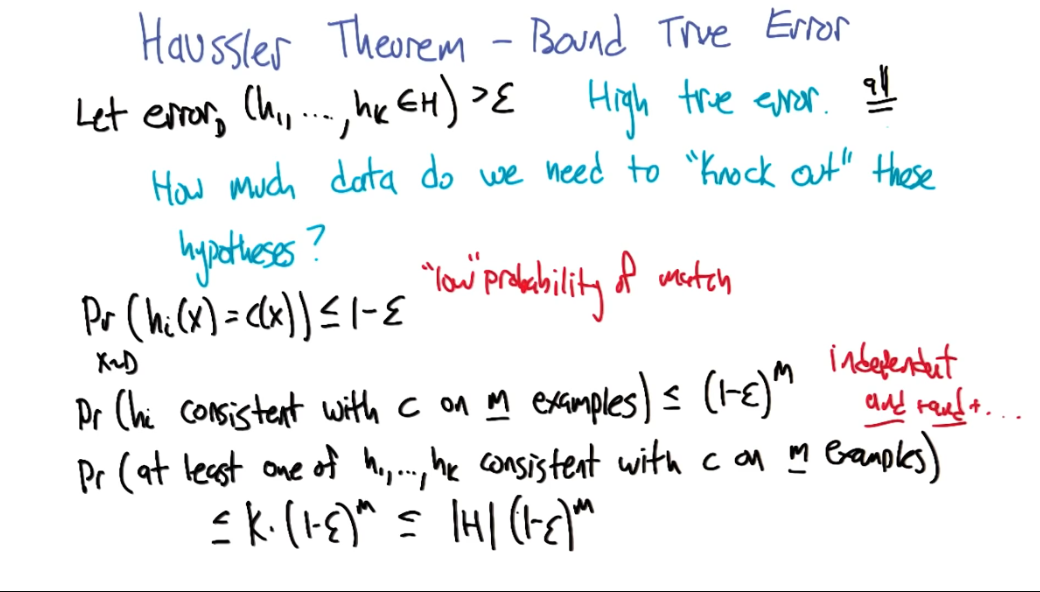 Haussler Theorem - Bound True Error
Let error_D (h_1, ..., h_k ∈ H) > ε High true error. all
How much data do we need to "knock out" these
hypotheses?
"low" probability of match
Pr (h_i(x) = c(x)) ≤ 1-ε
x~D
Pr (h_i consistent with c on m examples) ≤ (1-ε)^m independent
and and + ...
Pr (at least one of h_1, ..., h_k consistent with c on m examples)
≤ k · (1-ε)^m ≤ |H| (1-ε)^m